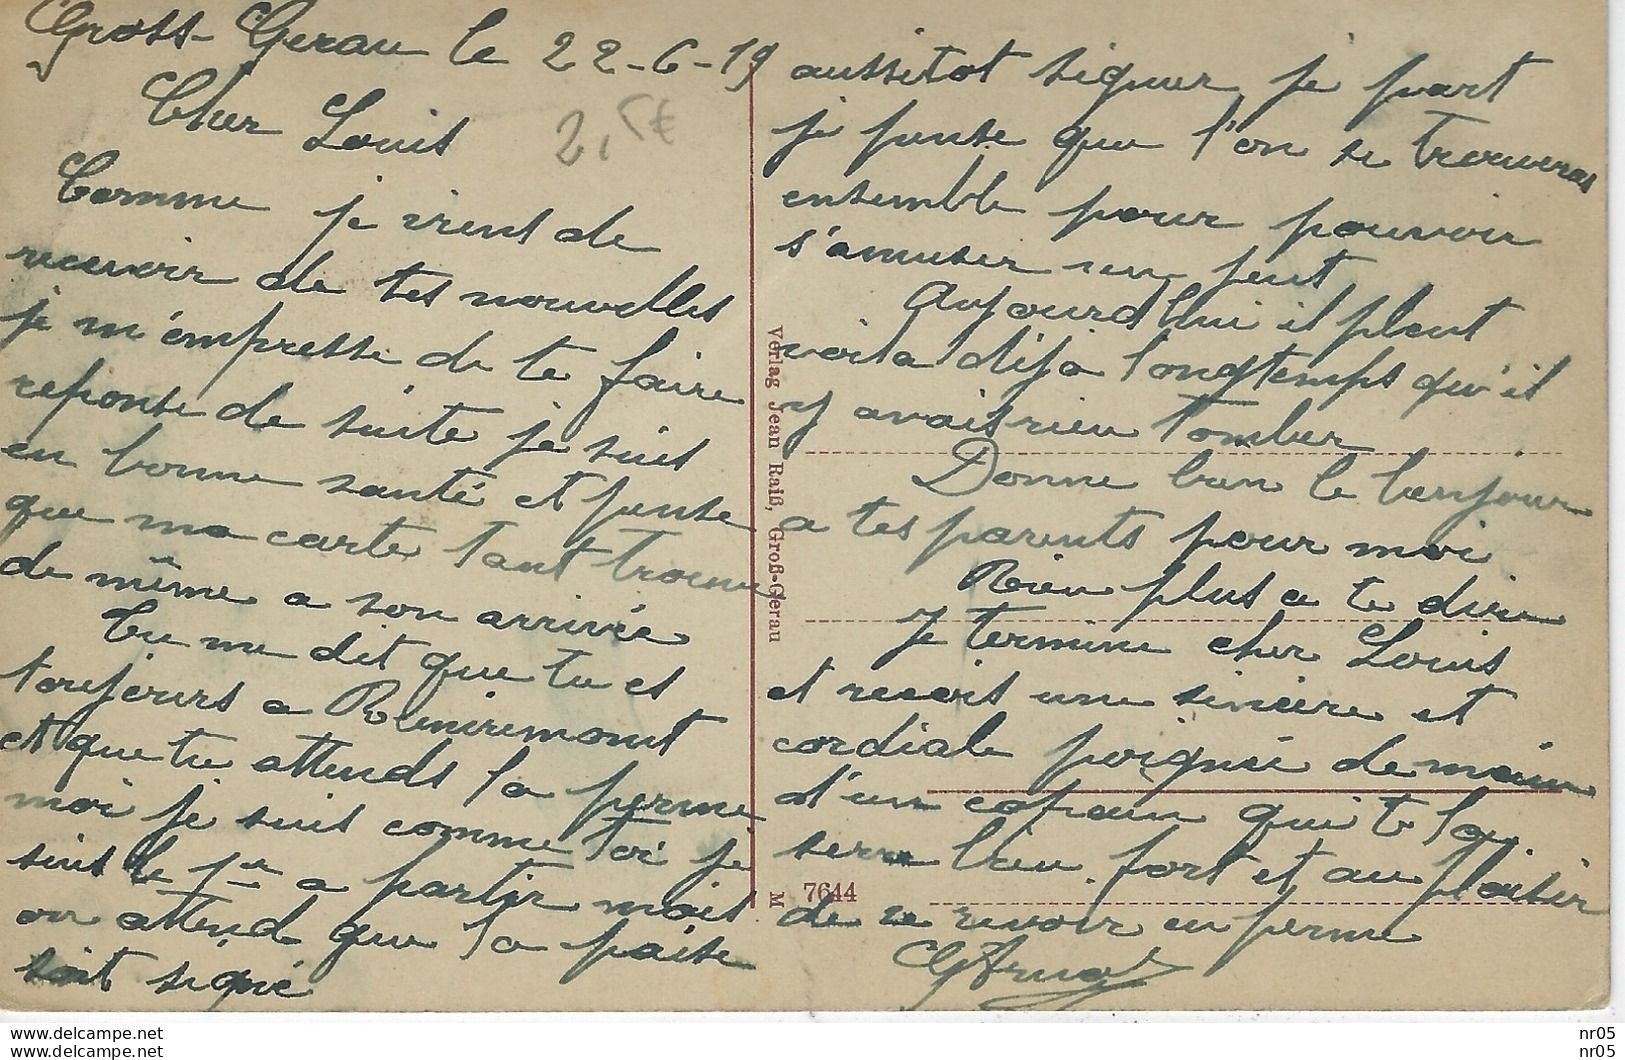 Gross-Gerau le 22-6-19
Cher Louis
2,5€
Comme je vient de
recevoir de tes nouvelles
je m'empresse de te faire
reponse de suite je suis
en bonne santé et pense
que ma carte tant trouve
de même a son arrivée
Tu me dit que tu es
toujours a Remiremont
et que tu attends la perme
moi je suis comme toi je
suis le 1er a partir mais
on attend que la paise
soit signé
aussitot signer je part
je pense que l'on se trouveras
ensemble pour pouvoir
s'amuser un peut
Aujourd'hui il pleut
voila déja longtemps qu'il
y avais rien tomber
Donne bien le bonjour
a tes parents pour moi
Rien plus a te dire
Je termine cher Louis
et recois une sincère et
cordiale poignée de main
d'un copain qui te la
serre bien fort et au plaisir
de se revoir en perme
Verlag Jean Raiß, Groß-Gerau
M 7644
nr05
nr05
delcampe.net
delcampe.net